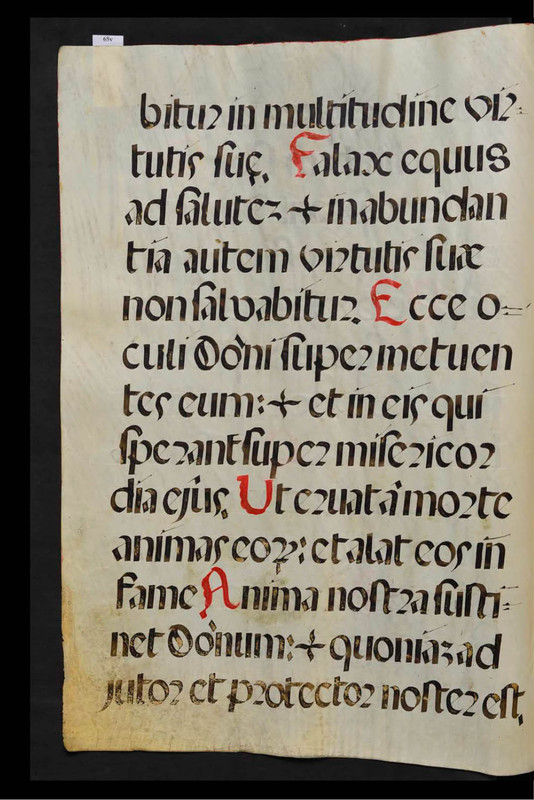 65v
bitur in multitudine vir-
tutis suę. Falax equus
ad salutez + in abundan
tia autem virtutis suæ
non salvabitur. Ecce o-
culi Dom̃i super metuen
tes eum: + et in eis qui
sperant super misericor
dia ejus. Ut eruat â morte
animas eoꝝ: et alat eos in
fame Anima nostra susti-
net Dom̃num: + quoniaz ad
jutor et protector noster est,